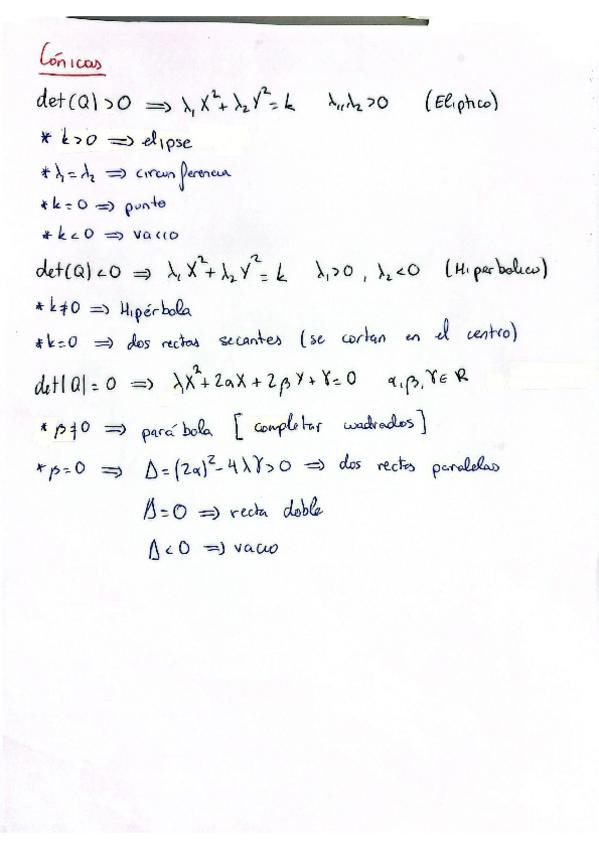 Cónicas
det(Q)>0 ⟹ λ₁X²+λ₂Y²=k λ₁,λ₂>0 (Elíptico)
* k>0 ⟹ elipse
* λ₁=λ₂ ⟹ circunferencia
* k=0 ⟹ punto
* k<0 ⟹ vacío
det(Q)<0 ⟹ λ₁X²+λ₂Y²=k λ₁>0, λ₂<0 (Hiperbolico)
* k≠0 ⟹ Hipérbola
* k=0 ⟹ dos rectas secantes (se cortan en el centro)
det|Q|=0 ⟹ λX²+2αX+2βY+γ=0 α,β,γ∈R
* β≠0 ⟹ parábola [completar cuadrados]
* β=0 ⟹ Δ=(2α)²-4λγ>0 ⟹ dos rectas paralelas
Δ=0 ⟹ recta doble
Δ<0 ⟹ vacío